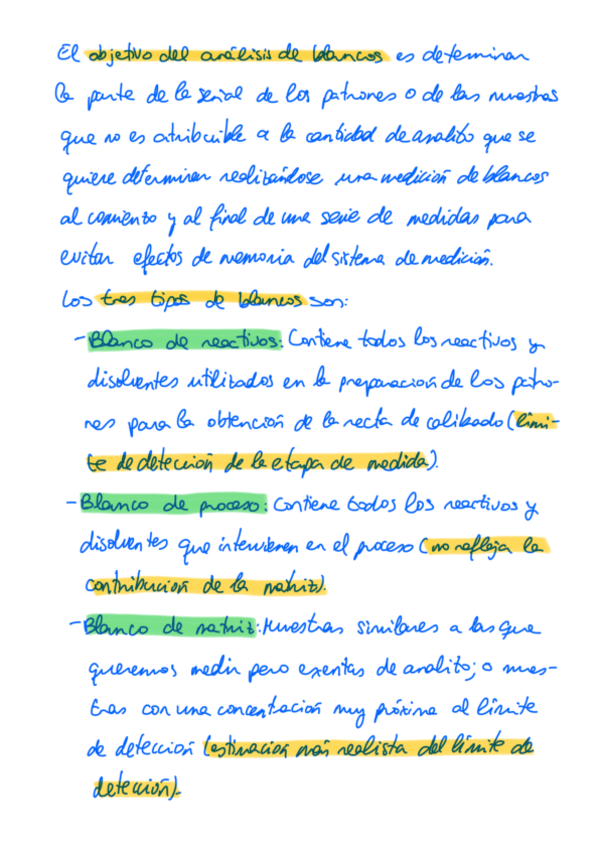 El objetivo del análisis de blancos es determinar
la parte de la señal de los patrones o de las muestras
que no es atribuible a la cantidad de analito que se
quiere determinar realizándose una medición de blancos
al comienzo y al final de una serie de medidas para
evitar efectos de memoria del sistema de medición.
Los tres tipos de blancos son:
- Blanco de reactivos: Contiene todos los reactivos y
disolventes utilizados en la preparación de los patro-
nes para la obtención de la recta de calibado (lími-
te de detección de la etapa de medida).
- Blanco de proceso: Contiene todos los reactivos y
disolventes que intervienen en el proceso (no refleja la
contribución de la matriz).
- Blanco de matriz: Muestras similares a las que
queremos medir pero exentas de analito; o mues-
tras con una concentración muy próxima al límite
de detección (estimación más realista del límite de
detección).